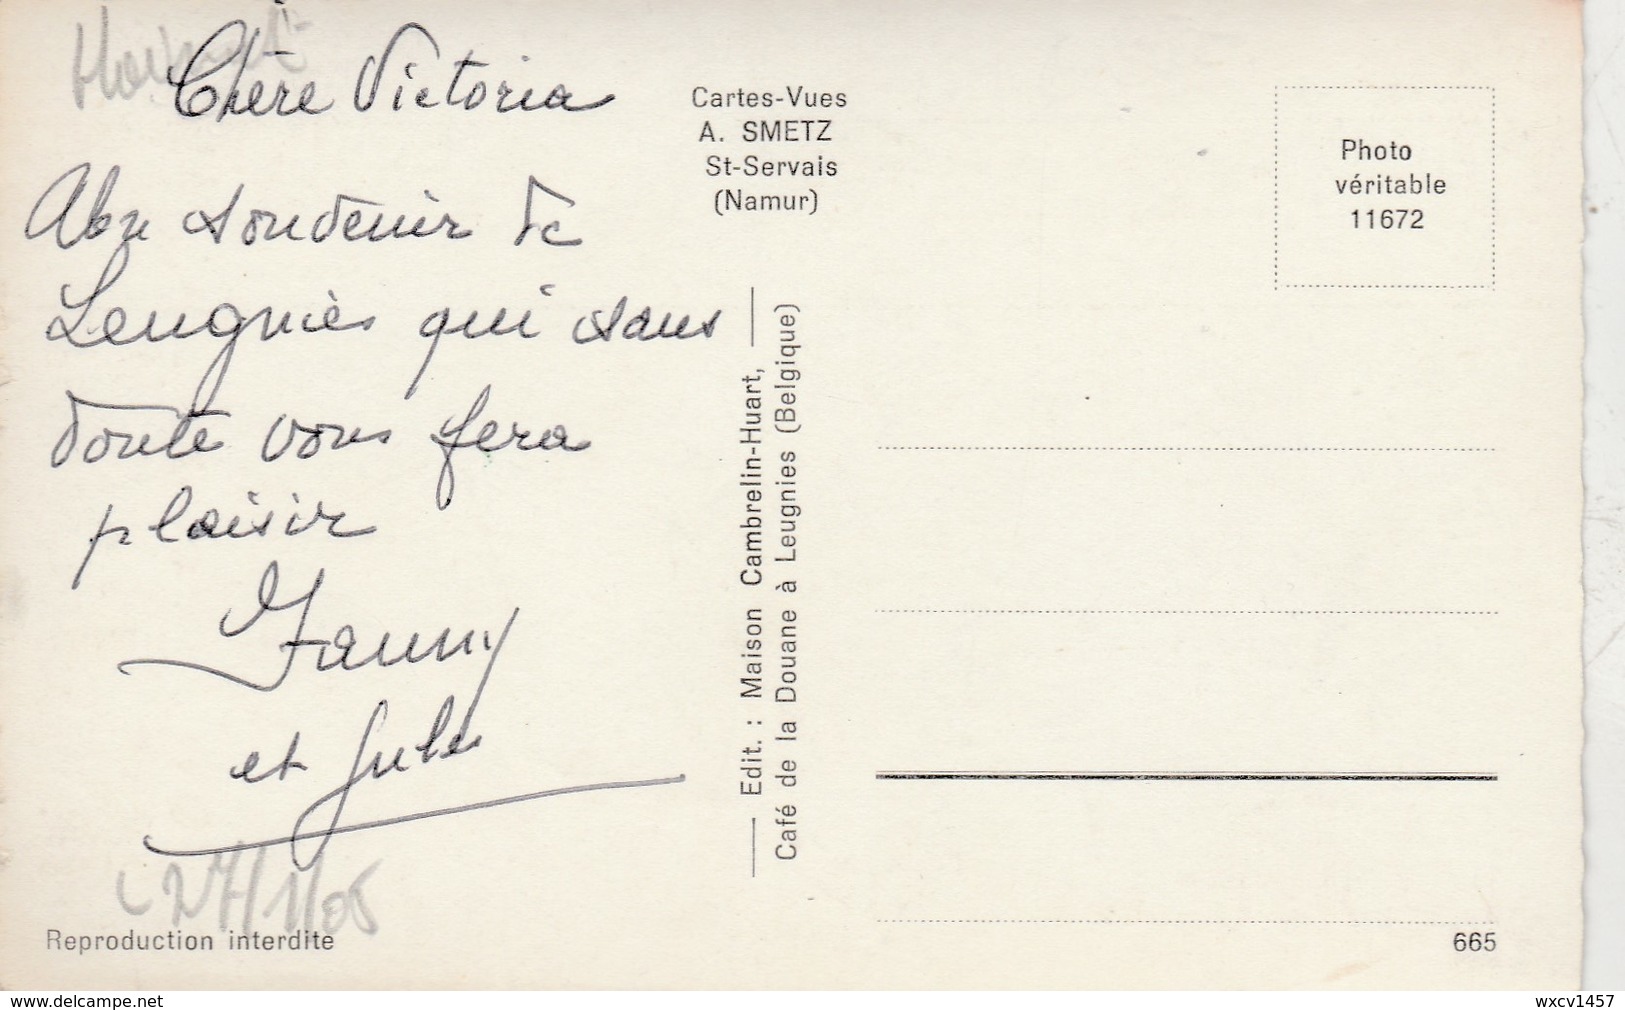 Chère Victoria
souvenir de
Leugnies qui sans
doute vous fera
plaisir
Fanny
et Jules
27/1/05
Reproduction interdite
Cartes-Vues
A. SMETZ
St-Servais
(Namur)
Edit. : Maison Cambrelin-Huart,
Café de la Douane à Leugnies (Belgique)
Photo
véritable
11672
665
www.delcampe.net
wxcv1457